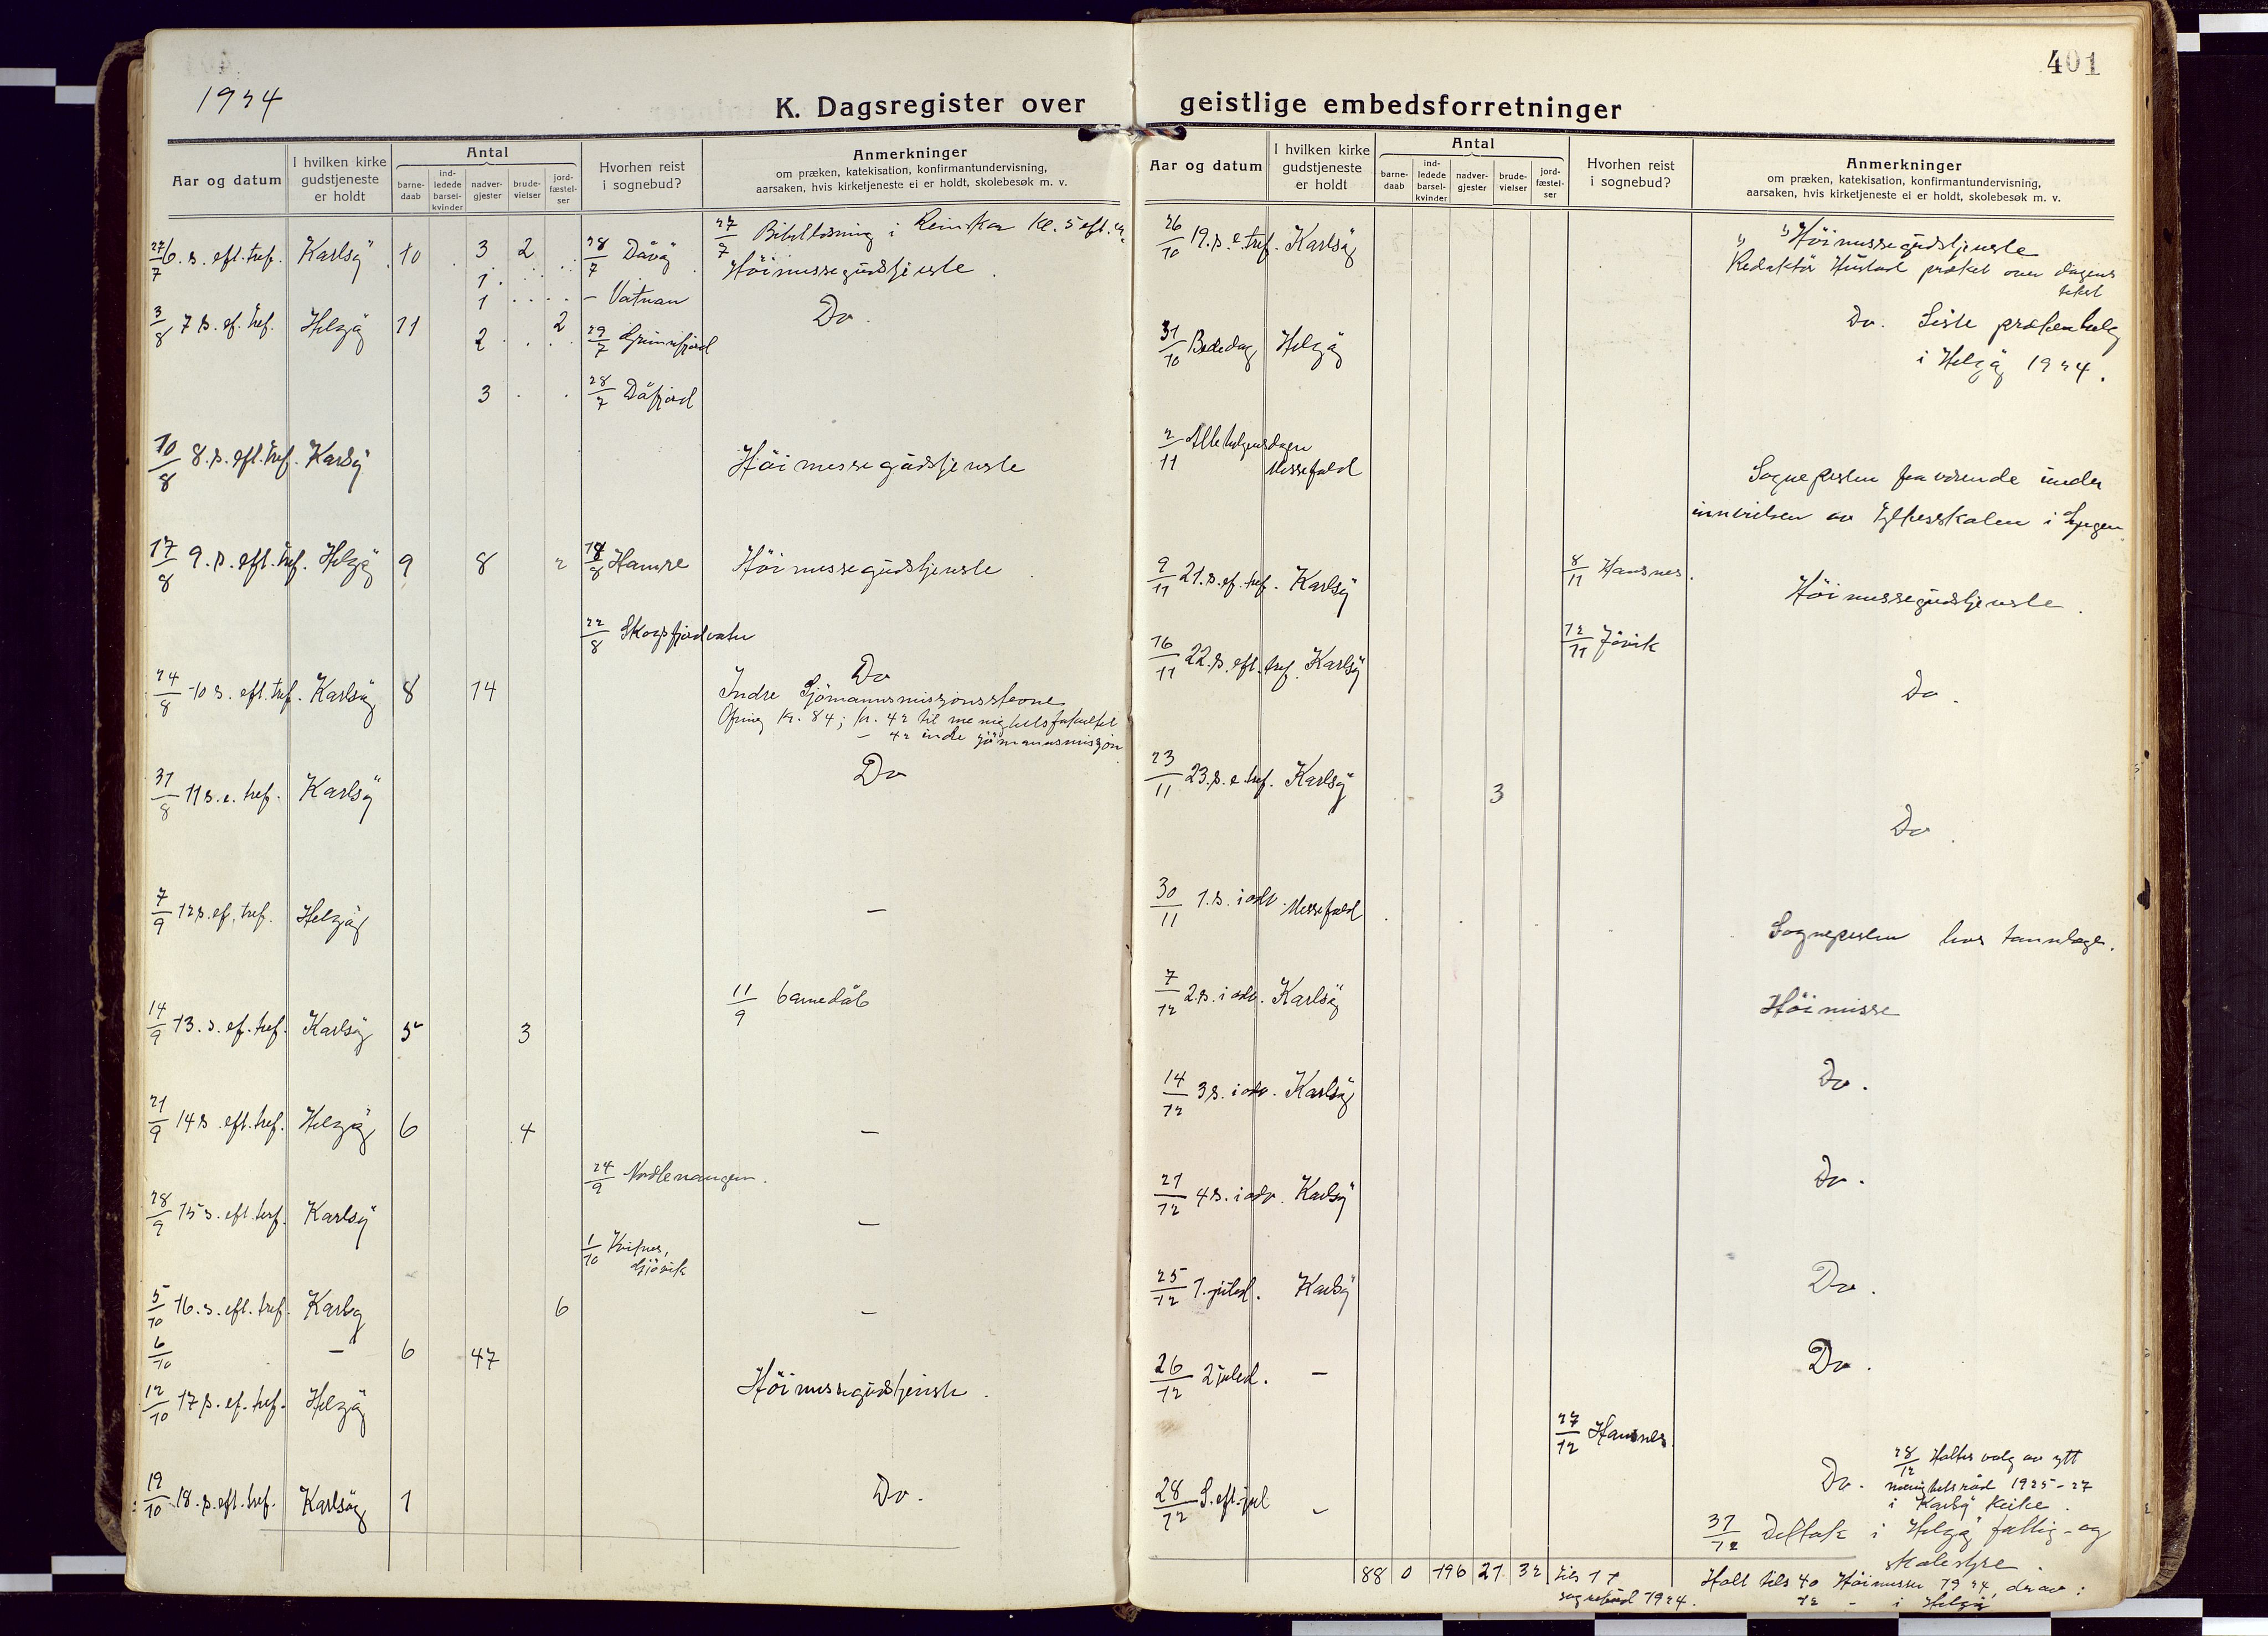 401
1924
K. Dagsregister over geistlige embedsforretninger
Aar og datum
I hvilken kirke gudstjeneste er holdt
Antal
barne-daab
ind-ledede barsel-kvinder
nadver-gjester
brude-vielser
jord-fæstel-ser
Hvorhen reist i sognebud?
Anmerkninger
om præken, katekisation, konfirmantundervisning,
aarsaken, hvis kirketjeneste ei er holdt, skolebesøk m. v.
27/7 Bibellesning i Reinskar kl. 5 eft.
27/7 6. s. eft. tref. Karlsöy 10 3 2 28/7 Dåvöy Höimessegudstjeneste
1
1 - Vatnan
3/8 7 s. ef. tref. Helgöy 11 2 2 29/7 Grunnfjord Do.
3 28/7 Dåfjord
10/8 8. s. eft. tref. Karlsöy Höimessegudstjeneste
17/8 9. s. eft. tref. Helgöy 9 8 2 18/8 Hamre Höimessegudstjeneste
22/8 Skogsfjordvatn
24/8 10 s. eft. tref. Karlsöy 8 14 Do
Indre Sjömannsmisjonsstevne
Ofring kr. 84; kr. 42 til menighetsfakultet
- 42 indre sjömannsmisjon
31/8 11 s. e. tref. Karlsöy Do
7/9 12 s. ef. tref. Helgöy -
11/9 barnedåb
14/9 13. s. ef. tref. Karlsöy 5 3
21/9 14 s. eft. tref. Helgöy 6 4 -
24/9 Nordlenangen.
28/9 15 s. eft. tref. Karlsöy -
1/10 Kvitnes, Gjövik
5/10 16. s. eft. tref. Karlsöy 6 -
6/10 - 6 47
12/10 17 s. ef. tref. Helgöy Höimessegudstjeneste.
19/10 18. s. eft. tref. Karlsöy 1 Do.
Aar og datum
I hvilken kirke gudstjeneste er holdt
Antal
barne-daab
ind-ledede barsel-kvinder
nadver-gjester
brude-vielser
jord-fæstel-ser
Hvorhen reist i sognebud?
Anmerkninger
om præken, katekisation, konfirmantundervisning,
aarsaken, hvis kirketjeneste ei er holdt, skolebesøk m. v.
26/10 19. s. e. tref. Karlsöy Höimessegudstjeneste
Redaktör Hustad præket over dagens tekst
31/10 Bededag Helgöy Do. Siste prækenhelg
i Helgöy 1924.
2/11 Allehelgensdagen Messefald
Sognepresten fraværende under
innvielsen av Ytresskolen i Lyngen
9/11 21. s. ef. tref. Karlsöy 8/11 Hansnes. Höimessegudstjeneste.
16/11 22. s. eft. tref. Karlsöy 12/11 Jövik Do.
23/11 23. s. e. tref. Karlsöy 3 Do.
30/11 1. s. i adv. Messefald Sognepresten hos tannlæge.
7/12 2. s. i adv. Karlsöy Höimesse
14/12 3 s. i adv. Karlsöy Do.
21/12 4 s. i adv. Karlsöy Do.
25/12 1. juled. Karlsöy Do.
26/12 2 juled. - Do.
27/12 Hansnes
28/12 S. eft. jul - Do. 28/12 Holtes valg av nytt
menighetsråd 1925-27
i Karlsöy kirke.
31/12 Deltok i Helgöy fattig- og
skolestyre.
88 0 196 21 32 tils 11
sognebud 1924.
Holt tils 40 Höimesser 1924, derav:
12 - i Helgöy